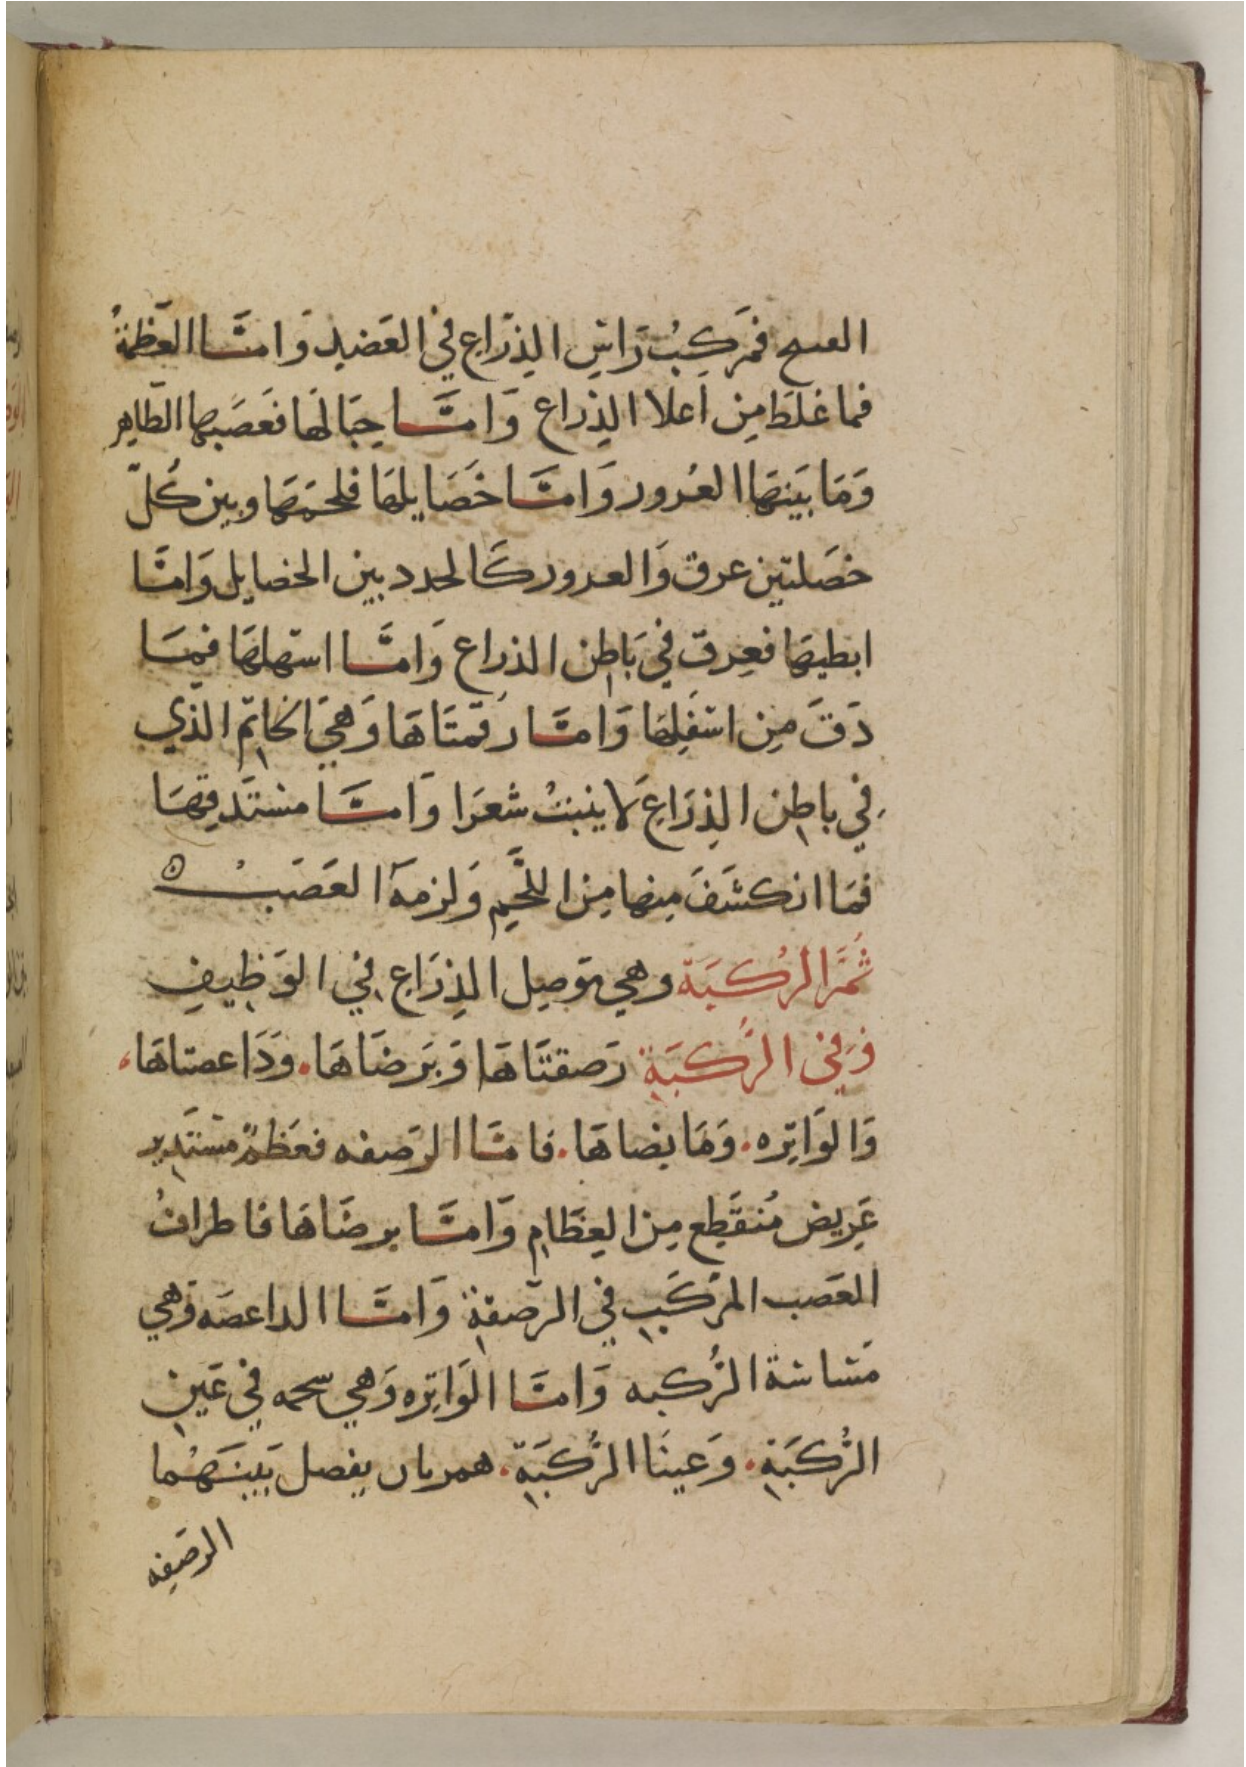 فمَركِبُ رَاسِ الذِرَاعِ في العَضدِ وَامَّا العَظمَةُ
فما غلَظ مِن اَعلا الذِراع وَامَّا حِبَالهَا فعَصَبها الظاهِر
وَمَا بَينهَا العُرور وَامَّا خَصَايلهَا فلحمَهَا وبين كُلّ
خصَلتين عرق وَالعرور كَالحدد بين الخصايل وَامَّا
ابطيهَا فعِرق في بَاطِن الذراع وَامَّا اسَهلهَا فمَا
دَقَ مِن اسَفلِهَا وَامَّا رُقمتَاهَا وَهيَ الخاتم الذي
في باطِن الذِرَاعَ لا ينبتُ شعَرَا وَامَّا مستَدقهَا
فمَا انكشَفَ مِنها مِن اللَّحمِ وَلزمهَ العَصَبُ
ثُمَّ الرُكبَة وهي موَصِل الذِرَاع في الوَظِيفِ
وَفي الرُّكبَةِ رَصفتَاهَا وَبَرضَاهَا. وَدَاعصتاهَا،
وَالوَاتِره. وَمَابضاهَا. فامَّا الرَصفه فعَظمٌ مستَدِير
عَريض مُنقَطِع مِن العِظَام وَامَّا برضَاهَا فاطرافُ
العَصب المرَكَبِ في الرَصفةِ وَامَّا الداعصَه وَهي
مَشاشة الرُّكبه وَامَّا الوَاتِره وَهي شحمه في عَين
الرُّكبَةِ. وَعينَا الرُّكبَةِ. يفصل بَينَهُما
الرصَفِه